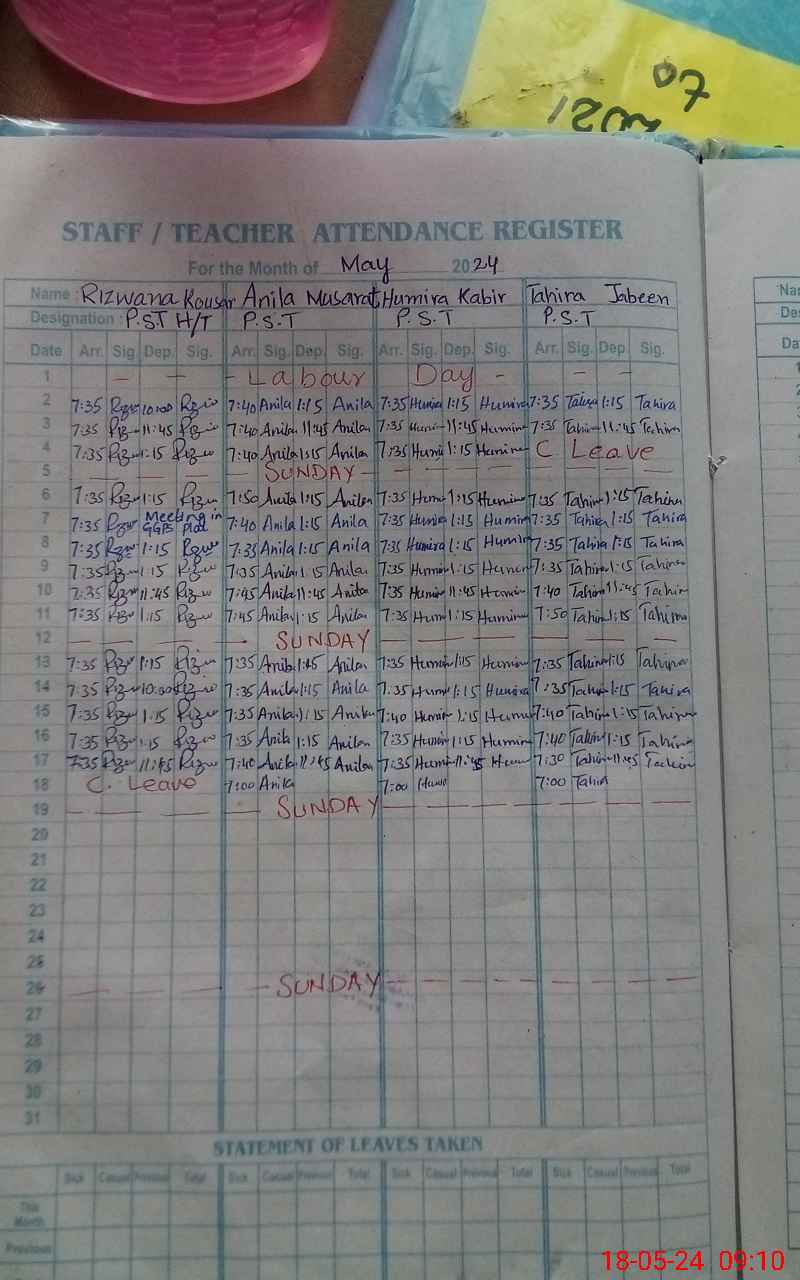 07
2021
STAFF / TEACHER ATTENDANCE REGISTER
For the Month of May 2024
Name : Rizwana Kousar Anila Musarat Humira Kabir Tahira Jabeen
Designation : P.S.T H/T P.S.T P.S.T P.S.T
Date Arr. Sig. Dep. Sig. Arr. Sig. Dep. Sig. Arr. Sig. Dep. Sig. Arr. Sig. Dep. Sig.
1 - Labour Day -
2 7:35 Rizw 10:00 Rizw 7:40 Anila 1:15 Anila 7:35 Humira 1:15 Humira 7:35 Tahira 1:15 Tahira
3 7:35 Rizw 11:45 Rizw 7:40 Anila 11:45 Anila 7:35 Humira 11:45 Humira 7:35 Tahira 11:45 Tahira
4 7:35 Rizw 1:15 Rizw 7:40 Anila 1:15 Anila 7:35 Humira 1:15 Humira C Leave
5 SUNDAY
6 7:35 Rizw 1:15 Rizw 7:50 Anila 1:15 Anila 7:35 Humira 1:15 Humira 7:35 Tahira 1:15 Tahira
7 7:35 Rizw Meeting in GGPS Pial 7:40 Anila 1:15 Anila 7:35 Humira 1:15 Humira 7:35 Tahira 1:15 Tahira
8 7:35 Rizw 1:15 Rizw 7:35 Anila 1:15 Anila 7:35 Humira 1:15 Humira 7:35 Tahira 1:15 Tahira
9 7:35 Rizw 1:15 Rizw 7:35 Anila 1:15 Anila 7:35 Humira 1:15 Humira 7:35 Tahira 1:15 Tahira
10 7:35 Rizw 11:45 Rizw 7:45 Anila 11:45 Anila 7:35 Humira 11:45 Humira 7:40 Tahira 11:45 Tahira
11 7:35 Rizw 1:15 Rizw 7:45 Anila 1:15 Anila 7:35 Humira 1:15 Humira 7:50 Tahira 1:15 Tahira
12 SUNDAY
13 7:35 Rizw 1:15 Rizw 7:35 Anila 1:15 Anila 7:35 Humira 1:15 Humira 7:35 Tahira 1:15 Tahira
14 7:35 Rizw 10:00 Rizw 7:35 Anila 1:15 Anila 7:35 Humira 1:15 Humira 7:35 Tahira 1:15 Tahira
15 7:35 Rizw 1:15 Rizw 7:35 Anila 1:15 Anila 7:40 Humira 1:15 Humira 7:40 Tahira 1:15 Tahira
16 7:35 Rizw 1:15 Rizw 7:35 Anila 1:15 Anila 7:35 Humira 1:15 Humira 7:40 Tahira 1:15 Tahira
17 7:35 Rizw 11:45 Rizw 7:40 Anila 11:45 Anila 7:35 Humira 11:45 Humira 7:30 Tahira 11:45 Tahira
18 C. Leave 7:00 Anila 7:00 Humira 7:00 Tahira
19 SUNDAY
20
21
22
23
24
25
26 SUNDAY
27
28
29
30
31
STATEMENT OF LEAVES TAKEN
Sick Casual Previous Total Sick Casual Previous Total Sick Casual Previous Total Sick Casual Previous Total
This Month
Previous
18-05-24 09:10